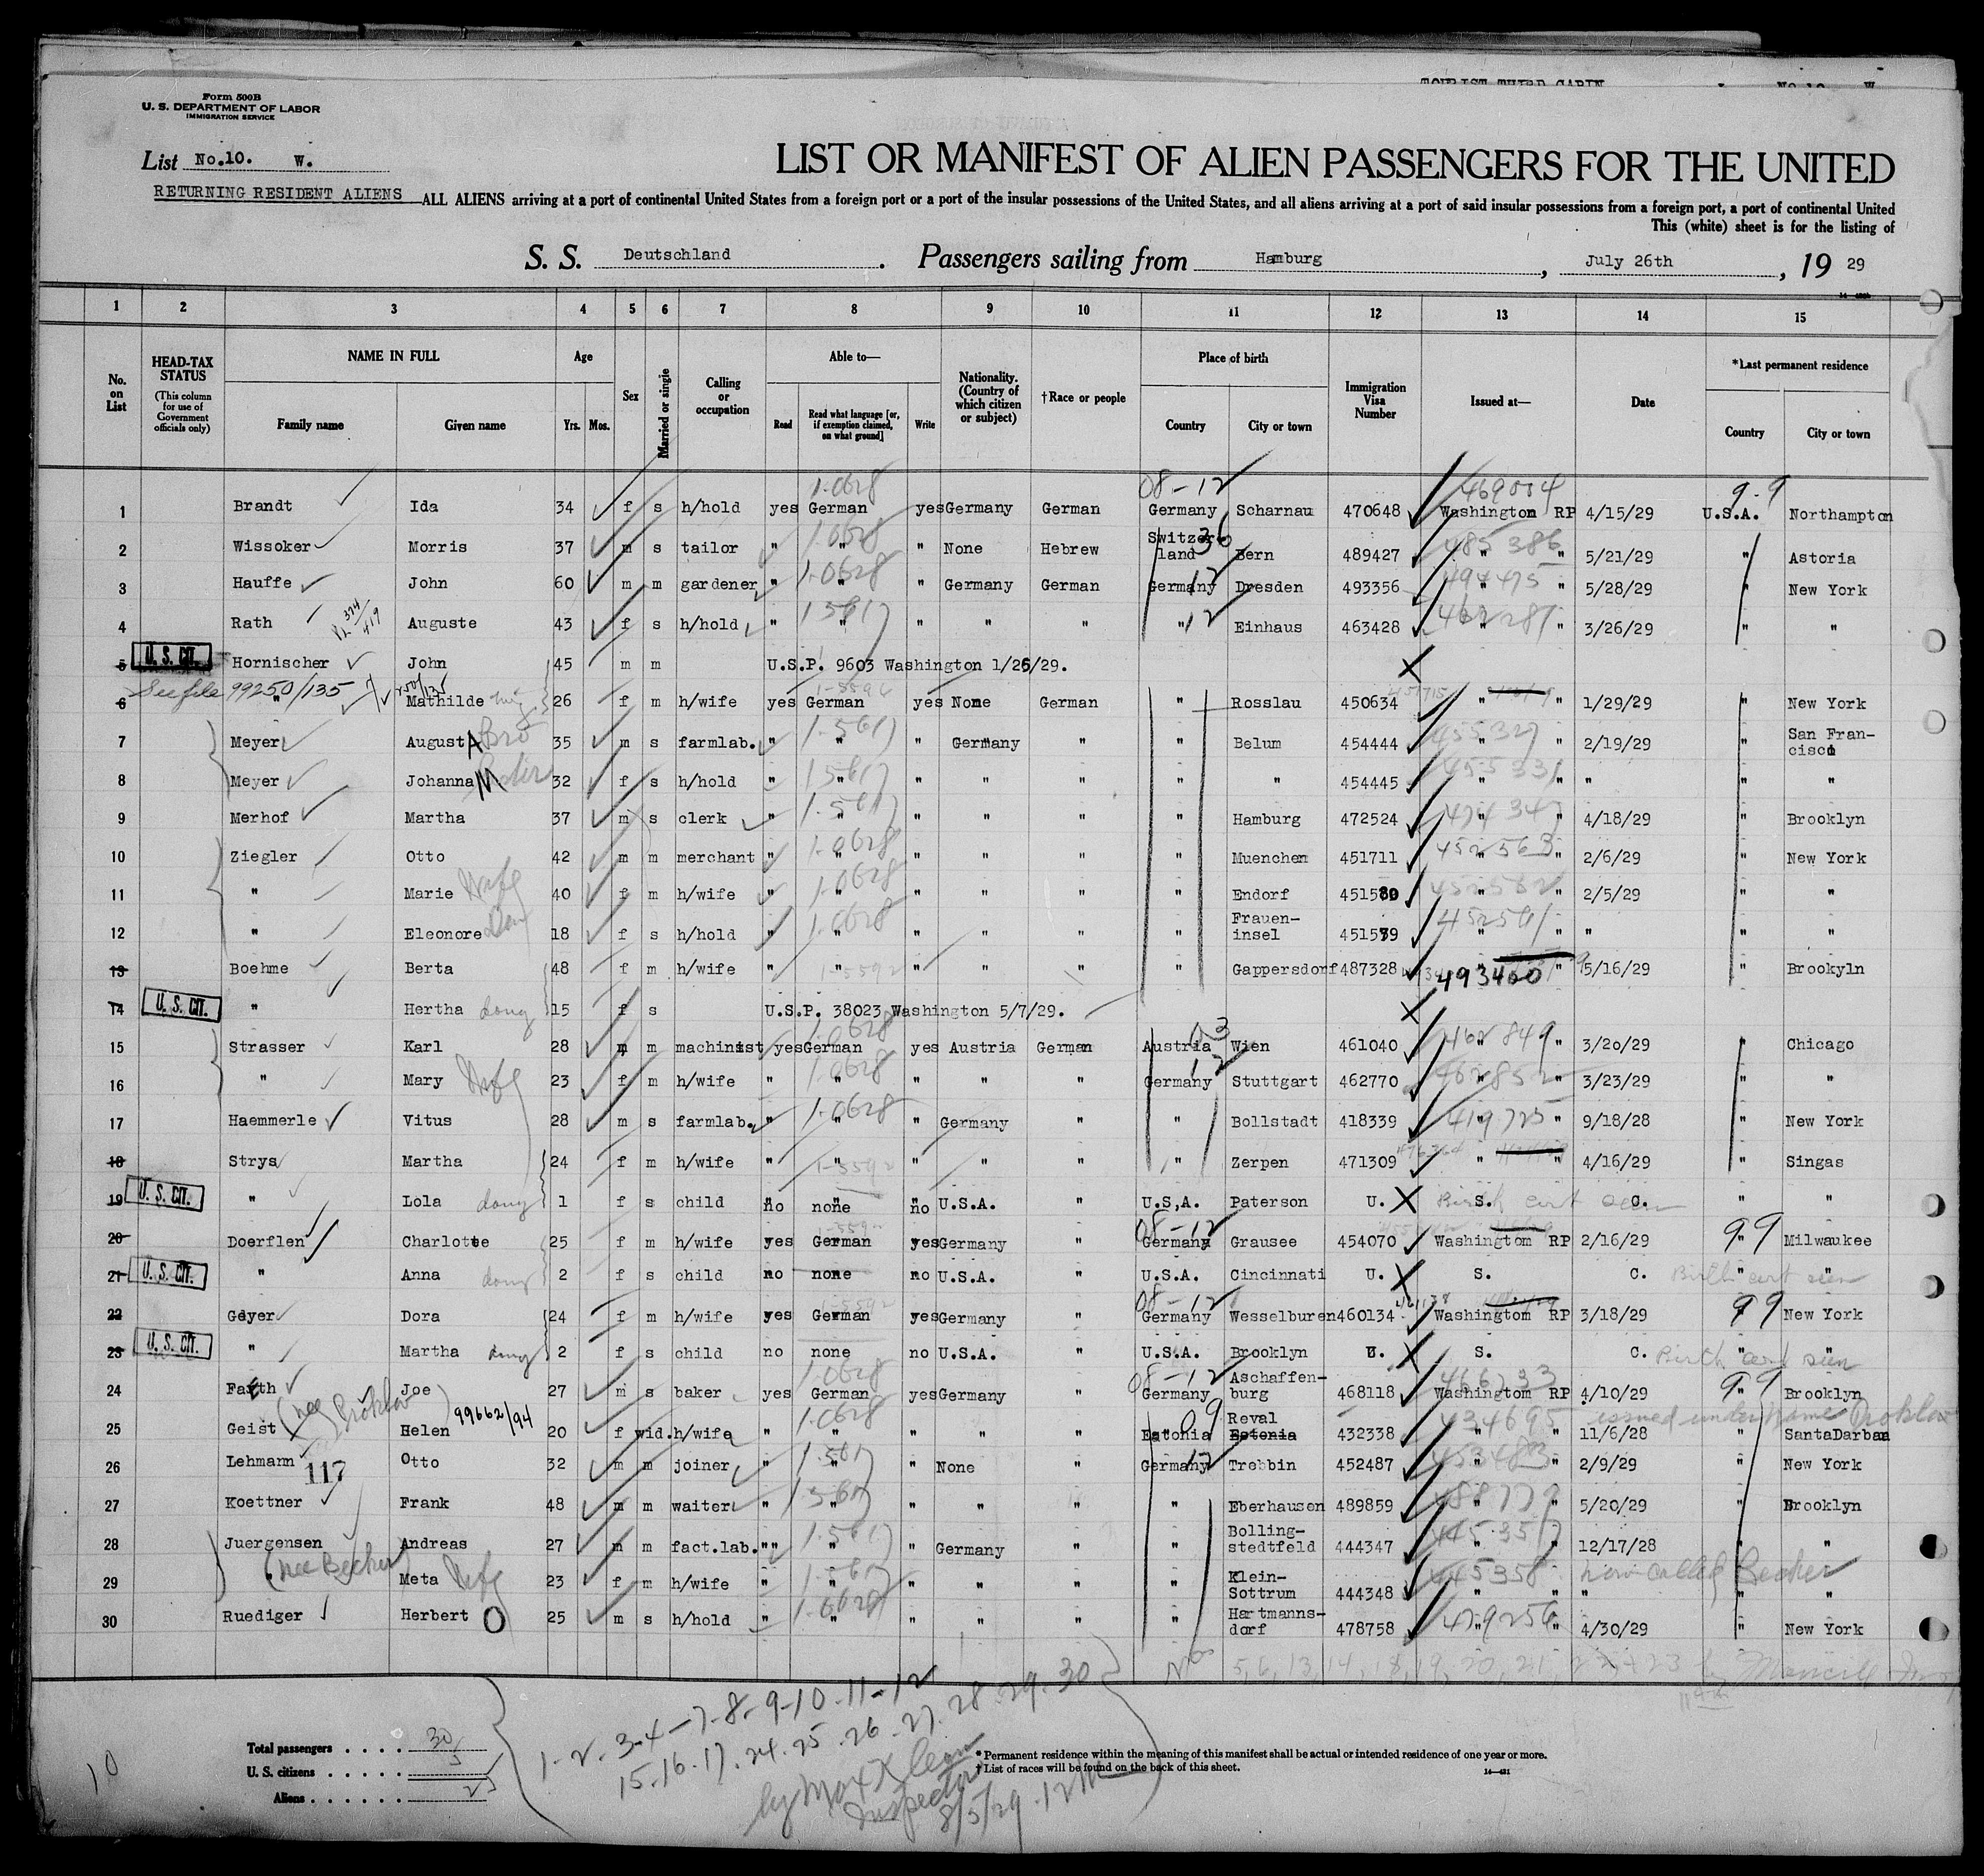 TOURIST THIRD CABIN No 10 W
Form 500B
U. S. DEPARTMENT OF LABOR
IMMIGRATION SERVICE
List No.10. W.
LIST OR MANIFEST OF ALIEN PASSENGERS FOR THE UNITED
RETURNING RESIDENT ALIENS ALL ALIENS arriving at a port of continental United States from a foreign port or a port of the insular possessions of the United States, and all aliens arriving at a port of said insular possessions from a foreign port, a port of continental United
This (white) sheet is for the listing of
S. S. Deutschland. Passengers sailing from Hamburg, July 26th, 19 29
1 2 3 4 5 6 7 8 9 10 11 12 13 14 15
No. on List HEAD-TAX STATUS (This column for use of Government officials only) NAME IN FULL Family name Given name Age Yrs. Mos. Sex Married or single Calling or occupation Able to— Read Read what language [or, if exemption claimed, on what ground] Write Nationality. (Country of which citizen or subject) †Race or people Place of birth Country City or town Immigration Visa Number Issued at— Date *Last permanent residence Country City or town
1 Brandt Ida 34 f s h/hold yes German yes Germany German Germany Scharnau 470648 Washington RP 4/15/29 U.S.A. Northampton
2 Wissoker Morris 37 m s tailor " " " None Hebrew Switzer-land Bern 489427 " " 5/21/29 " Astoria
3 Hauffe John 60 m m gardener " " " Germany German Germany Dresden 493356 " " 5/28/29 " New York
4 Rath Auguste 43 f s h/hold " " " " " " Einhaus 463428 " " 3/26/29 " "
5 U. S. CIT. Hornischer John 45 m m U.S.P. 9603 Washington 1/26/29.
6 See file 99250/135 " Mathilde 26 f m h/wife yes German yes None German " Rosslau 450634 " " 1/29/29 " New York
7 Meyer August A Bro 35 m s farmlab. " " " Germany " " Belum 454444 " " 2/19/29 " San Fran-cisco
8 Meyer Johanna M Sister 32 f s h/hold " " " " " " " 454445 " " " " "
9 Merhof Martha 37 m s clerk " " " " " " Hamburg 472524 " " 4/18/29 " Brooklyn
10 Ziegler Otto 42 m m merchant " " " " " " Muenchen 451711 " " 2/6/29 " New York
11 " Marie Wife 40 f m h/wife " " " " " " Endorf 451580 " " 2/5/29 " "
12 " Eleonore 18 f s h/hold " " " " " " Frauen-insel 451579 " " " " "
13 Boehme Berta 48 f m h/wife " " " " " " Gappersdorf 487328 493460 " 5/16/29 " Brookyln
14 U. S. CIT. " Hertha daug 15 f s U.S.P. 38023 Washington 5/7/29.
15 Strasser Karl 28 m m machinist yes German yes Austria German Austria Wien 461040 " " 3/20/29 " Chicago
16 " Mary Wife 23 f m h/wife " " " " " Germany Stuttgart 462770 " " 3/23/29 " "
17 Haemmerle Vitus 28 m s farmlab. " " " Germany " " Bollstadt 418339 " " 9/18/28 " New York
18 Strys Martha 24 f m h/wife " " " " " " Zerpen 471309 " " 4/16/29 " Singas
19 U. S. CIT. " Lola daug 1 f s child no none no U.S.A. " U.S.A. Paterson U. S. C. Birth cert seen " "
20 Doerflen Charlotte 25 f m h/wife yes German yes Germany " Germany Grausee 454070 Washington RP 2/16/29 " Milwaukee
21 U. S. CIT. " Anna daug 2 f s child no none no U.S.A. " U.S.A. Cincinnati U. S. C. Birth cert seen " "
22 Geyer Dora 24 f m h/wife yes German yes Germany " Germany Wesselburen 460134 Washington RP 3/18/29 New York
23 U. S. CIT. " Martha daug 2 f s child no none no U.S.A. " U.S.A. Brooklyn U. S. C. Birth cert seen " "
24 Faeth Joe 27 m s baker yes German yes Germany " Germany Aschaffen-burg 468118 Washington RP 4/10/29 " Brooklyn
25 Geist (nee Proklow) Helen 99662/94 20 f wid. h/wife " " " " " Estonia Reval Estonia 432338 " " 11/6/28 issued under name Proklow " SantaDarban
26 Lehmann 117 Otto 32 m m joiner " " " None " Germany Trebbin 452487 " " 2/9/29 " New York
27 Koettner Frank 48 m m waiter " " " " " " Eberhausen 489859 " " 5/20/29 " Brooklyn
28 Juergensen Andreas 27 m m fact.lab. " " " Germany " " Bolling-stedtfeld 444347 " " 12/17/28 " "
29 " (nee Becker) Meta Wife 23 f m h/wife " " " " " " Klein-Sottrum 444348 " " " now called Becker " "
30 Ruediger Herbert O 25 m s h/hold " " " " " " Hartmanns-dorf 478758 " " 4/30/29 " New York
Nos 5, 6, 13, 14, 18, 19, 20, 21, 22, + 23 by
Total passengers . . . . 30
U. S. citizens . . . . . 5
Aliens . . . . . . 25
10
1-2-3-4-7-8-9-10-11-12
15-16-17-24-25-26-27-28-29-30
by Max Klean
Inspector
8/5/29
* Permanent residence within the meaning of this manifest shall be actual or intended residence of one year or more.
† List of races will be found on the back of this sheet.